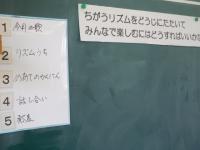 1
2 リズムうち
3 めあてのかくにん
4 話し合い
5 発表
ちがうリズムをどうじにたたいて
みんなで楽しむにはどうすればいいかな